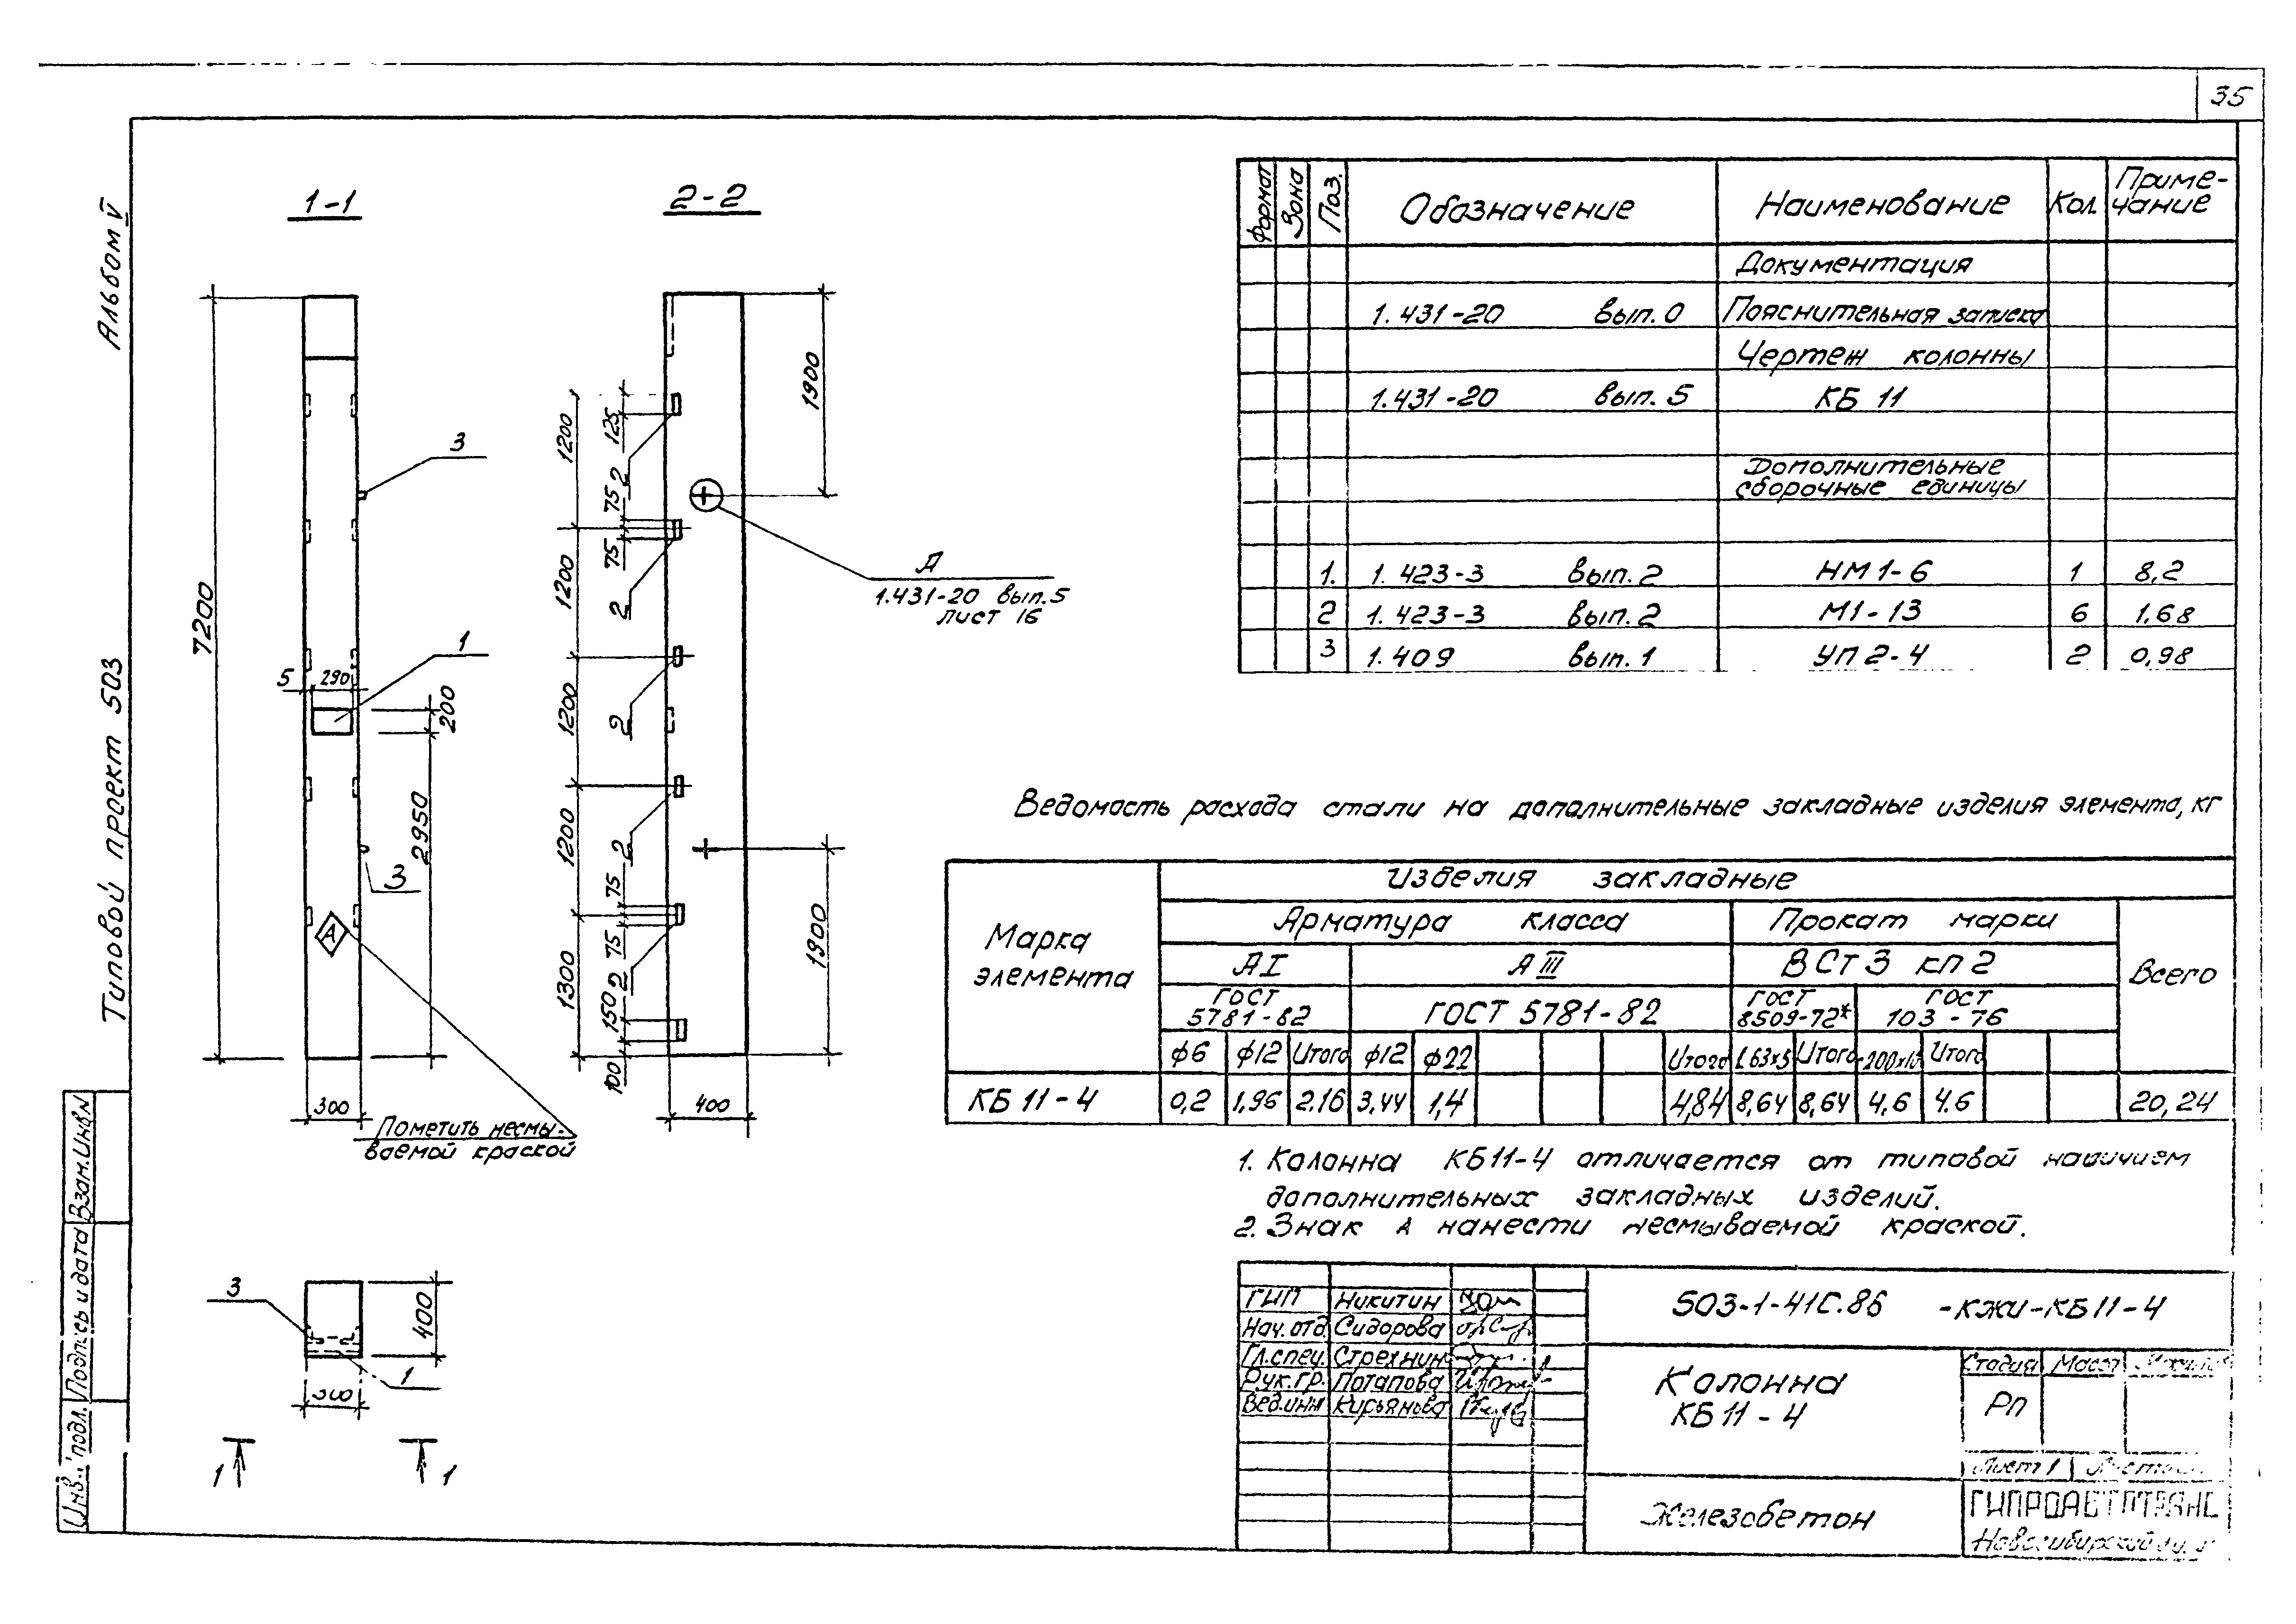 35
Альбом V
Типовой проект 503
1-1
2-2
7200
3
1
5
290
200
2950
3
А
300
Пометить несмы-
ваемой краской
1200
1200
1200
1200
1300
125
75
75
75
75
150
100
2
2
2
2
2
1900
1900
400
А
1.431-20 вып.5
лист 16
3
1
400
300
1
1
Формат Зона Поз. Обозначение Наименование Кол. Приме-
чание
Документация
1.431-20 вып.0 Пояснительная записка
Чертеж колонны
1.431-20 вып.5 КБ 11
Дополнительные
сборочные единицы
1. 1.423-3 вып.2 НМ1-6 1 8,2
2 1.423-3 вып.2 М1-13 6 1,68
3 1.409 вып.1 УП2-4 2 0,98
Ведомость расхода стали на дополнительные закладные изделия элемента, кг
Марка
элемента
Изделия закладные
Арматура класса Прокат марки
АI АIII ВСт3 кп2 Всего
ГОСТ
5781-82
ГОСТ 5781-82
ГОСТ
8509-72*
ГОСТ
103-76
ф6 ф12 Итого ф12 ф22 Итого L63х5 Итого Итого
КБ 11-4 0,2 1,96 2.16 3,44 1,4 4,84 8,64 8,64 4,6 4.6 20,24
1. Колонна КБ11-4 отличается от типовой наличием
дополнительных закладных изделий.
2. Знак А нанести несмываемой краской.
ГИП Никитин
Нач.отд. Сидорова
Гл.спец. Стрехнин
Рук.гр. Потапова
Вед.инж Кирьянова
503-1-41С.86 -КЖИ-КБ11-4
Колонна
КБ11-4
Стадия Масса
РП
Лист 1
Железобетон
ГИПРОАВТОТРАНС
Новосибирский
Инв. подл. Подпись и дата Взам.Инв№